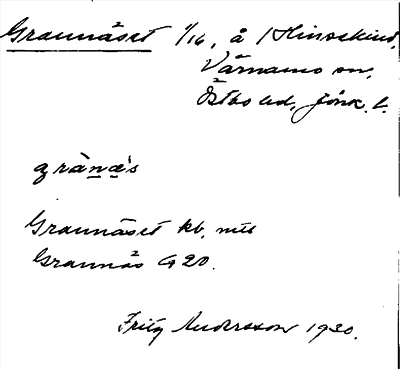 Grannäset 1/16, å 1 Hinsekind,
Värnamo sn,
Östbo hd, Jönk. l.
grànä̀s
Grannäset kb, mtl
Grannäs G 20.
Fritz Andersson 1930.